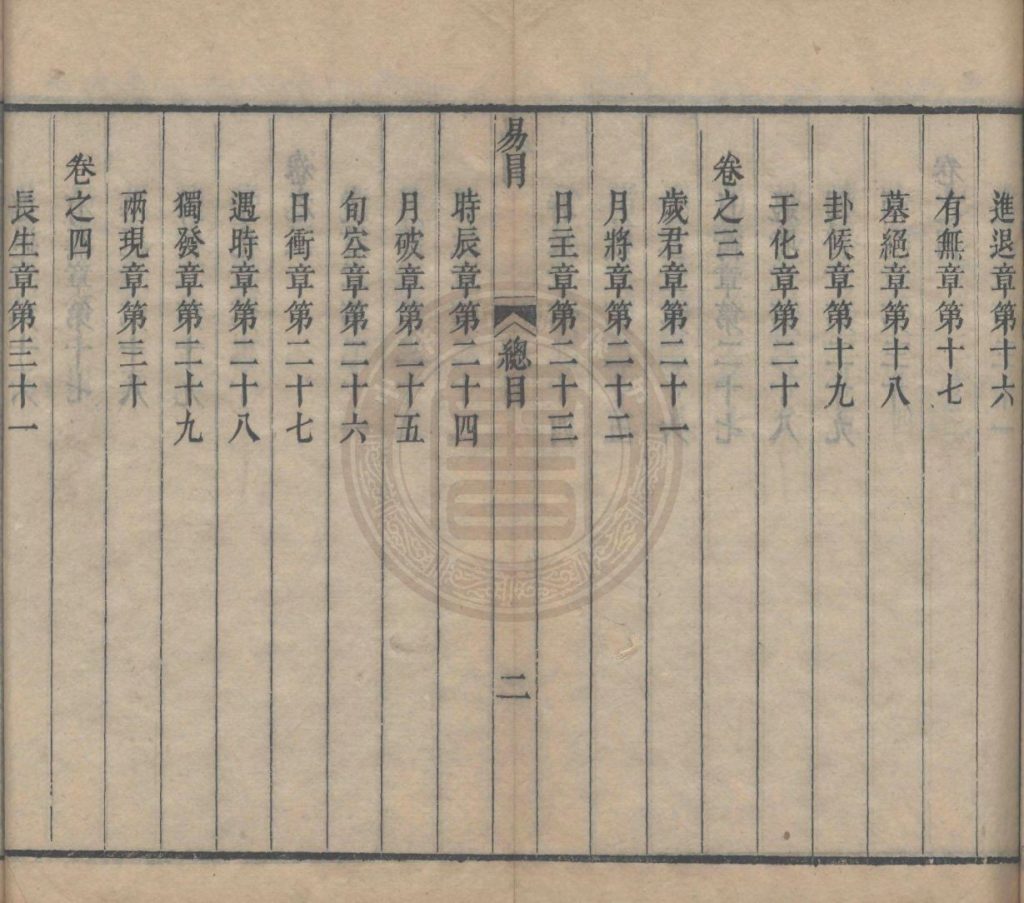 進退章第十六
有無章第十七
墓絕章第十八
卦候章第十九
于化章第二十
卷之三
歲君章第二十一
月將章第二十二
日主章第二十三
易冐
總目
二
時辰章第二十四
月破章第二十五
旬空章第二十六
日衝章第二十七
遇時章第二十八
獨發章第二十九
兩現章第三十
卷之四
長生章第三十一